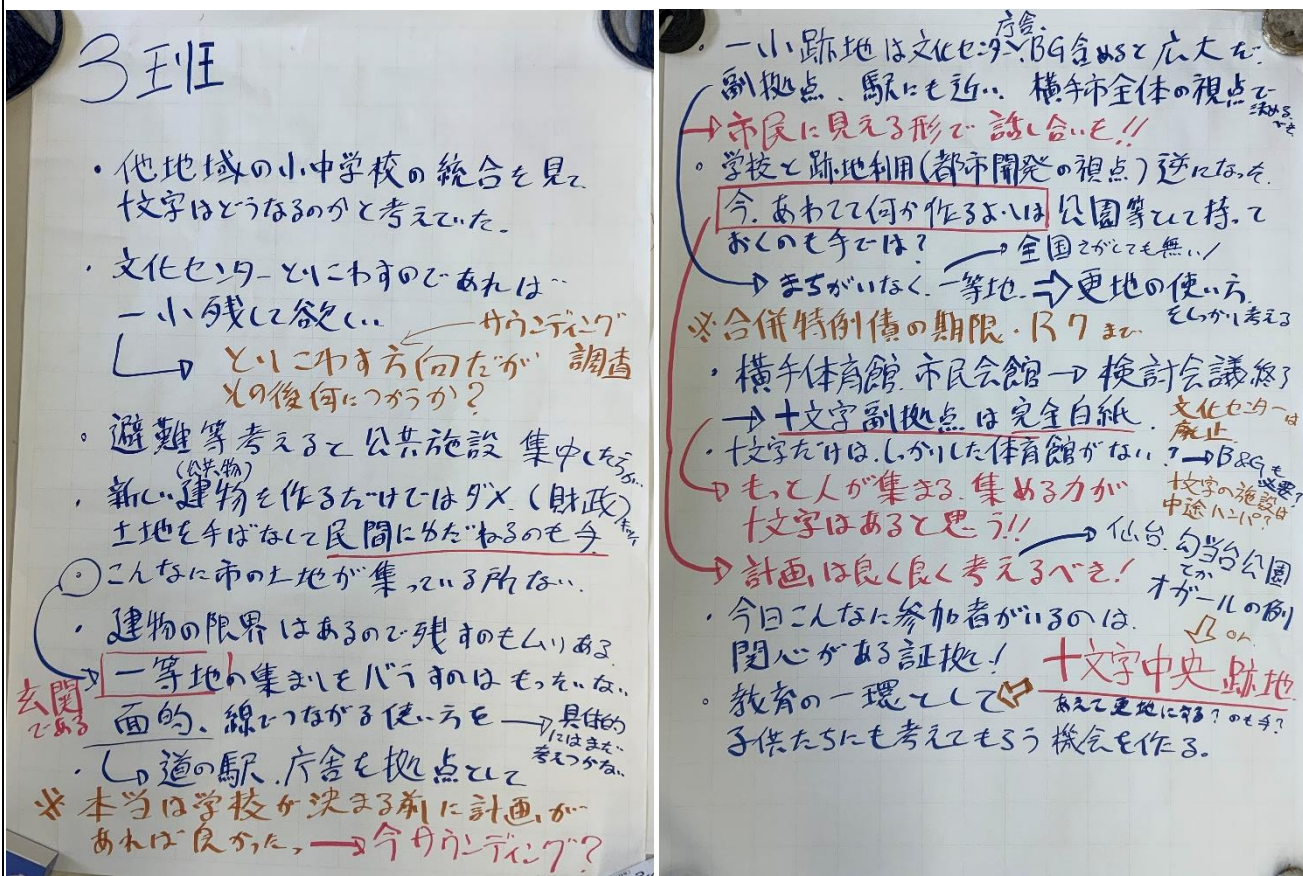 3班
・他地域の小中学校の統合を見て
十文字はどうなるのかと考えていた。
・文化センターとりこわすのであれば…
一小残して欲しい
サウンディング
調査
とりこわす方向だが
その後何につかうか?
・避難等考えると公共施設 集中したら
(公共物)
・新しい建物を作るだけではダメ。(財政)
土地を手ばなして民間にゆだねるのも手
・こんなに市の土地が集っている所ない
・建物の限界はあるので残すのもムリある
一等地の集まりをバラすのはもったいない
玄関
である
面的、線でつながる使い方を
→具体的
にはまだ
考えつかない
・道の駅、庁舎を拠点として
※本当は学校が決まる前に計画が
あれば良かった。→今サウンディング?
庁舎、
・一小跡地は文化センター、BG含めると広大だ
副拠点、駅にも近い、横手市全体の視点で
決める
べき
→市民に見える形で話し合いも!!
・学校と跡地利用(都市開発の視点)逆になった。
今、あわてて何か作るよりは公園等として持って
おくのも手では?
→全国さがしても無い!
→まちがいなく、一等地、⇒更地の使い方
をしっかり考える
※合併特例債の期限・R7まで
・横手体育館、市民会館→検討会議終了
→十文字副拠点は完全白紙。
文化センターは
廃止
・十文字だけは、しっかりした体育館がない?
→B&Gも
必要?
十文字の施設は
中途ハンパ?
→もっと人が集まる、集める力が
十文字はあると思う!!
→計画は良く良く考えるべき!
→仙台、勾当台公園
とか
オガールの例
・今日こんなに参加者がいるのは、
関心がある証拠!
or
十文字中央跡地
あえて更地にする?のも手?
・教育の一環として
子供たちにも考えてもらう機会を作る。